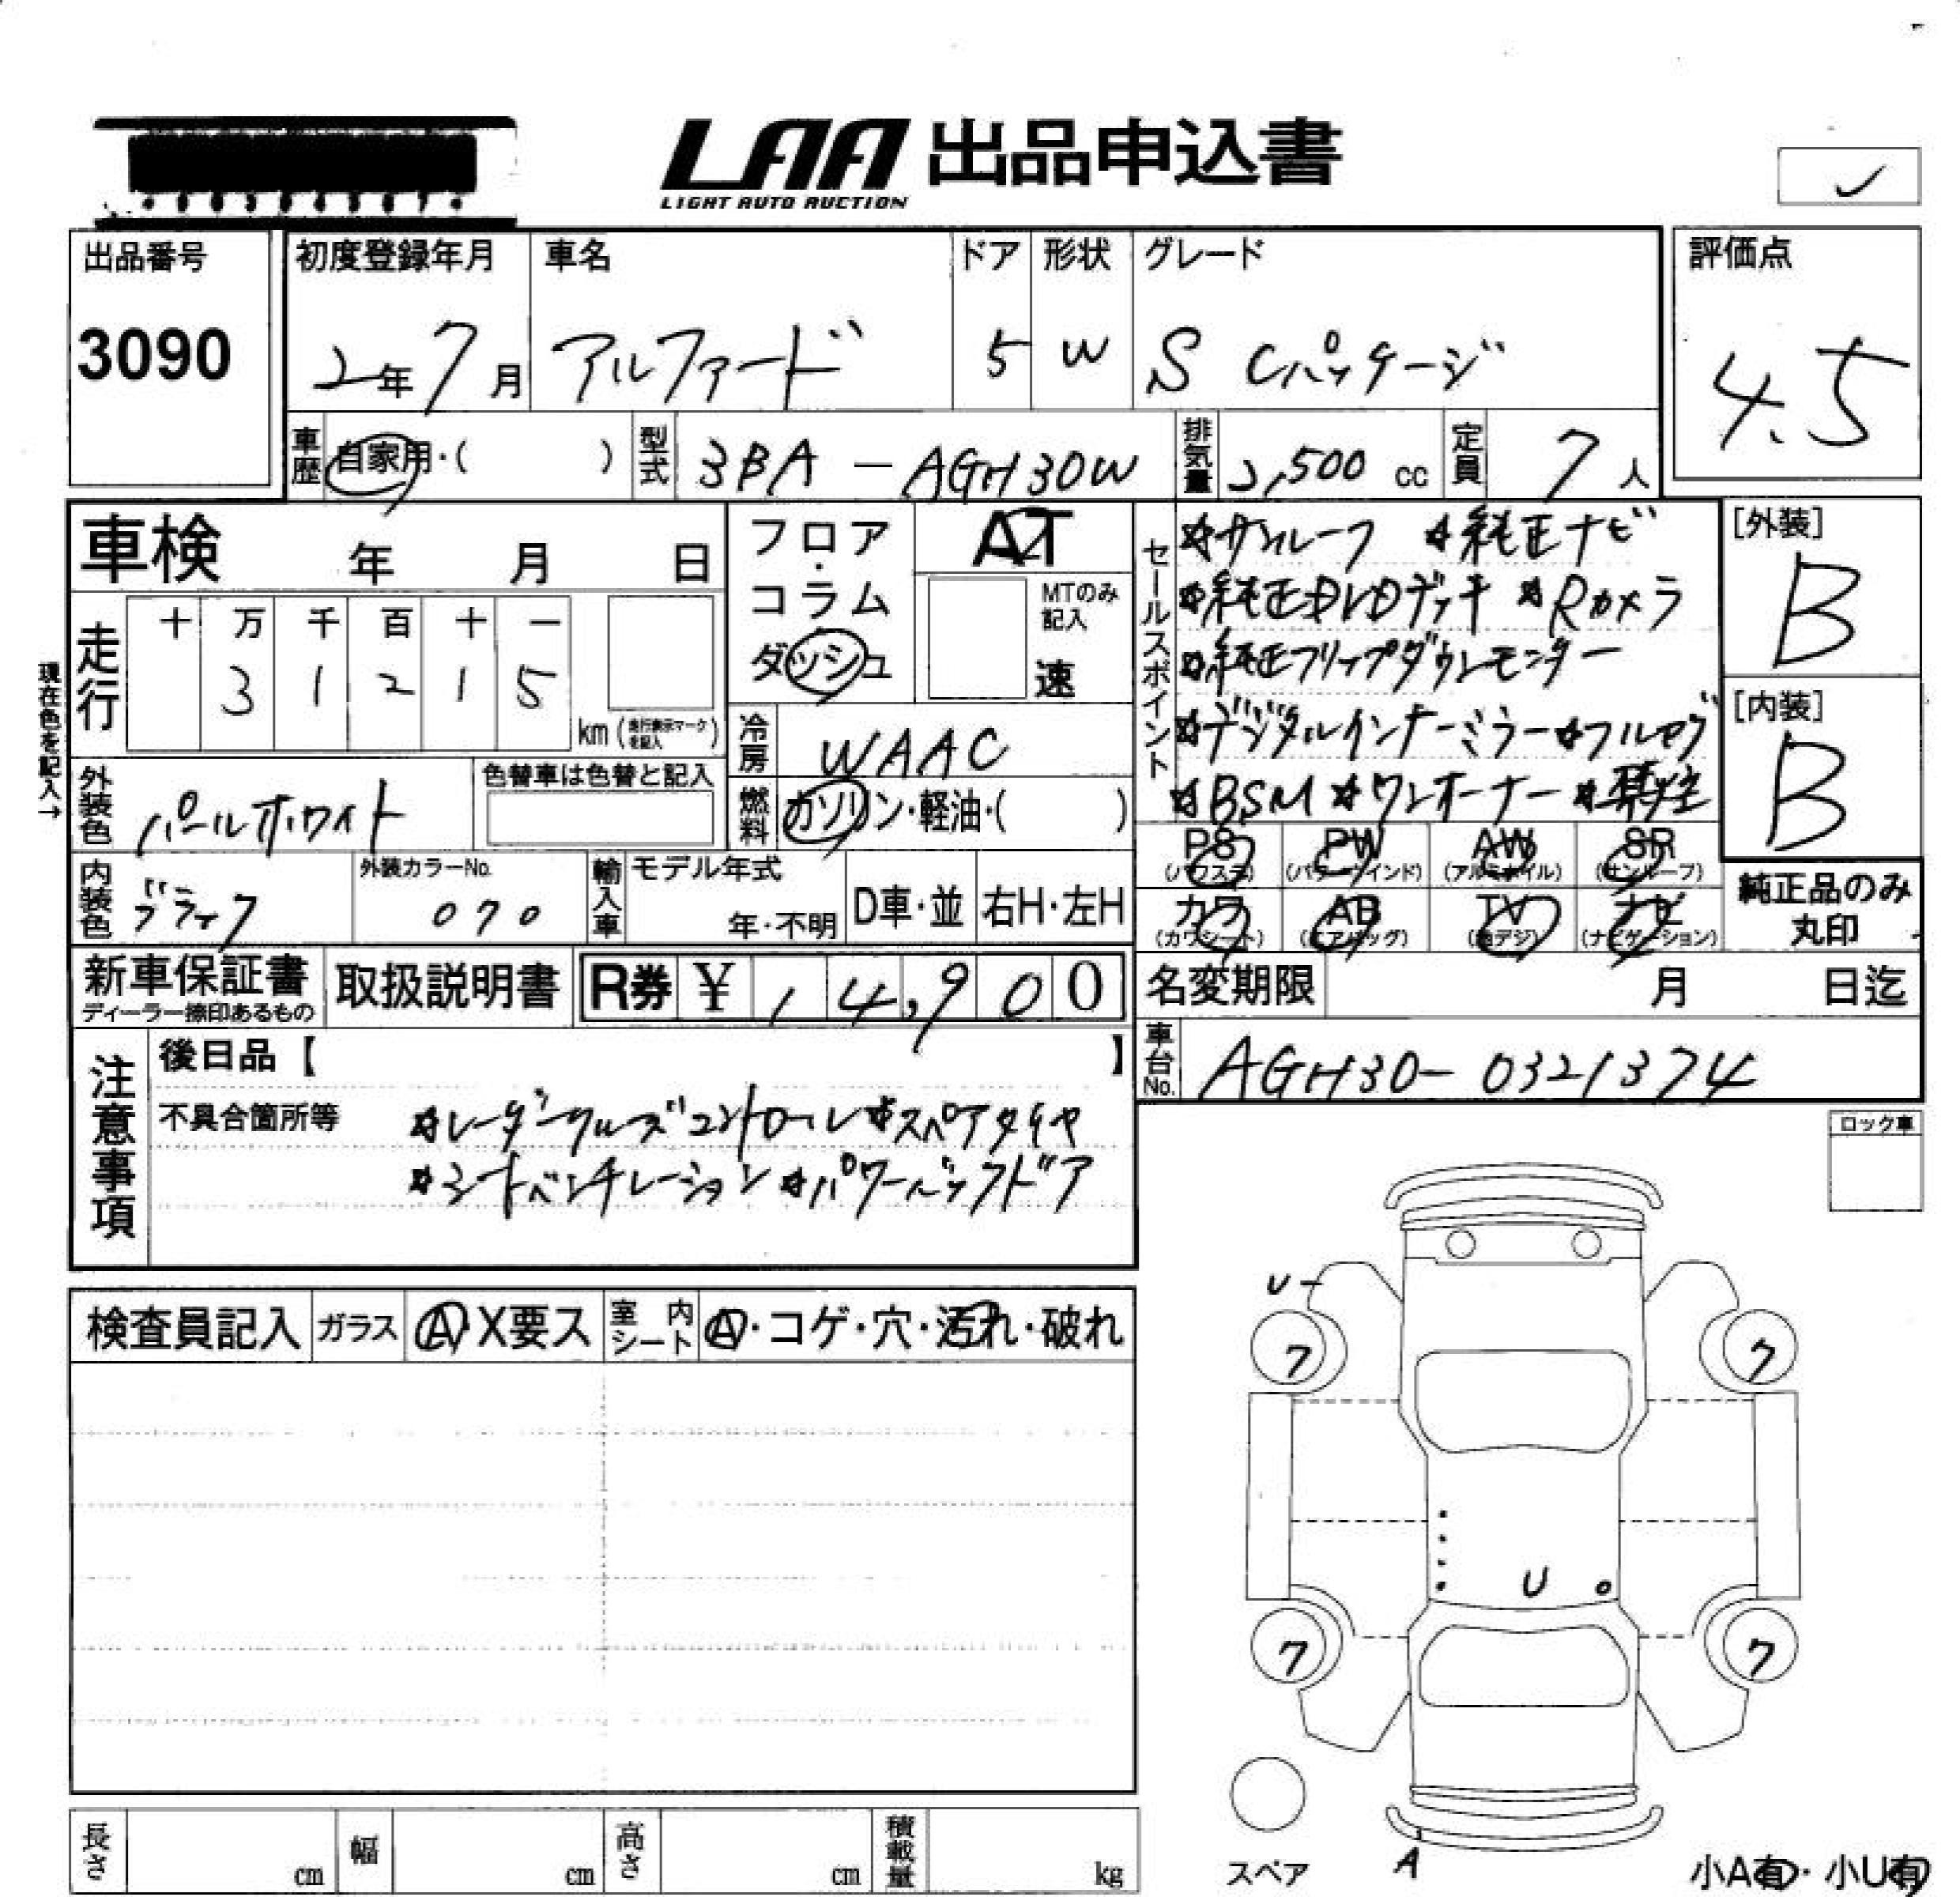 LAA 出品申込書
LIGHT AUTO AUCTION
出品番号
3090
初度登録年月
2年7月
車名
アルファード
ドア
5
形状
W
グレード
S Cパッケージ
評価点
4.5
車歴
自家用・( )
型式
3BA - AGH30W
排気量
2,500 cc
定員
7人
車検 年 月 日
走行
十 万 千 百 十 一
3 1 2 1 5
km (走行表示マークを記入)
現在色を記入→
フロア・コラム
ダッシュ
AT
MTのみ記入
速
冷房
WAAC
燃料
ガソリン・軽油・( )
外装色
パールホワイト
色替車は色替と記入
内装色
ブラック
外装カラーNo.
070
輸入車
モデル年式
年・不明
D車・並
右H・左H
セールスポイント
☆サンルーフ ☆純正ナビ
☆純正DVDデッキ ☆Rカメラ
☆純正フリップダウンモニター
☆デジタルインナーミラー☆フルセグ
☆BSM ☆ワンオーナー ☆禁煙
[外装]
B
[内装]
B
PS (パワステ)
PW (パワーウインド)
AW (アルミホイル)
SR (サンルーフ)
カワ (カワシート)
AB (エアバッグ)
TV (地デジ)
ナビ (ナビゲーション)
純正品のみ
丸印
新車保証書
ディーラー捺印あるもの
取扱説明書
R券 ¥ 14,900
名変期限 月 日迄
車台No.
AGH30-0321374
注意事項
後日品【 】
不具合箇所等
☆レーダークルーズコントロール☆スペアタイヤ
☆シートベンチレーション☆パワーバックドア
ロック車
検査員記入
ガラス
A・X要ス
室内シート
A・コゲ・穴・汚れ・破れ
U
ワ
ワ
U
ワ
ワ
スペア
A
小A有・小U有
長さ cm
幅 cm
高さ cm
積載量 kg